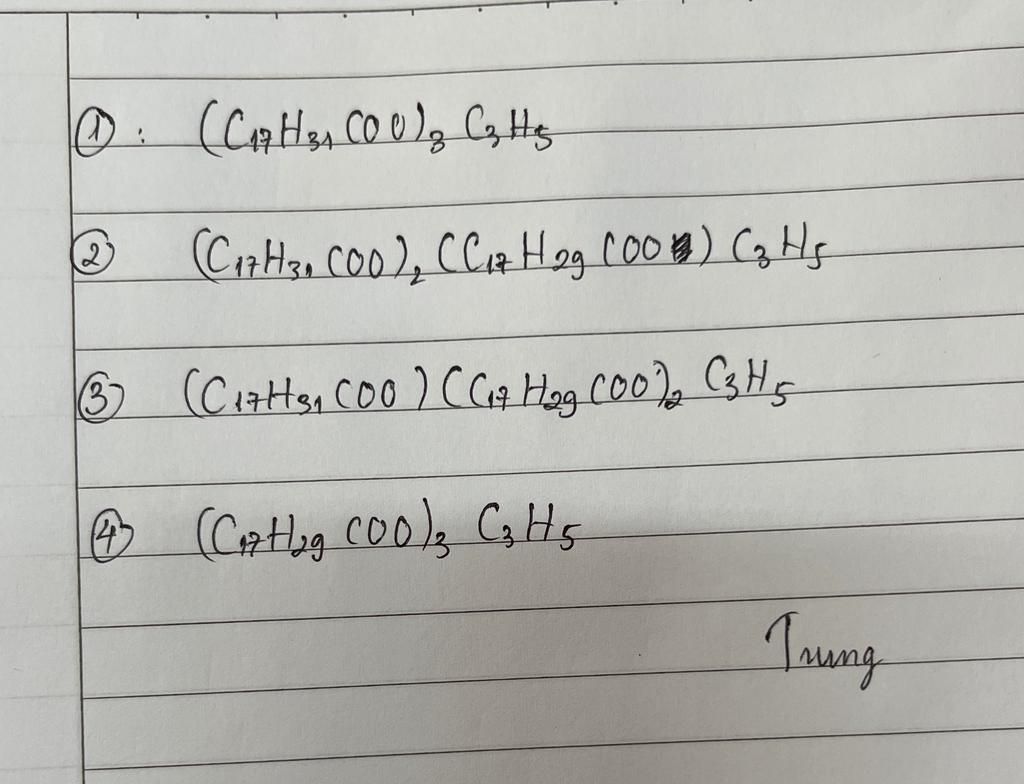 ①: (C₁₇H₃₁COO)₃ C₃H₅
② (C₁₇H₃₁COO)₂ (C₁₇H₂₉COO) C₃H₅
③ (C₁₇H₃₁COO) (C₁₇H₂₉COO)₂ C₃H₅
④ (C₁₇H₂₉COO)₃ C₃H₅
Trung